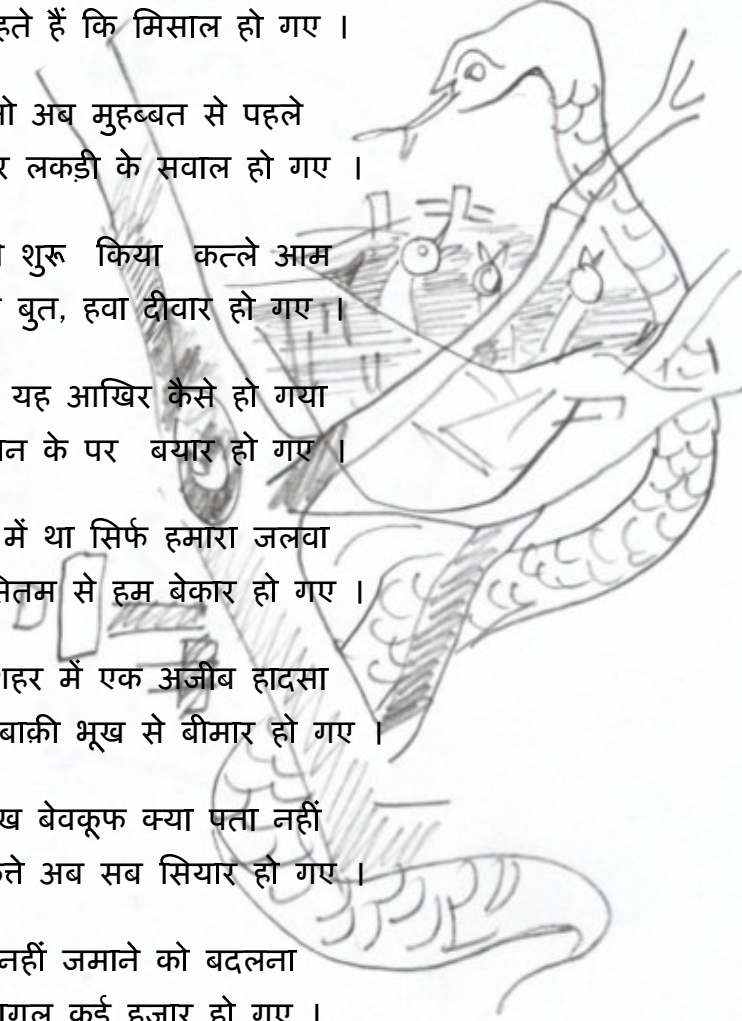 हते हैं कि मिसाल हो गए ।
अब मुहब्बत से पहले
लकड़ी के सवाल हो गए ।
शुरू किया कत्ले आम
बुत, हवा दीवार हो गए ।
यह आखिर कैसे हो गया
के पर बयार हो गए ।
में था सिर्फ हमारा जलवा
से हम बेकार हो गए ।
में एक अजीब हादसा
बाक़ी भूख से बीमार हो गए ।
बेवकूफ क्या पता नहीं
अब सब सियार हो गए ।
नहीं जमाने को बदलना
कई हजार हो गए ।